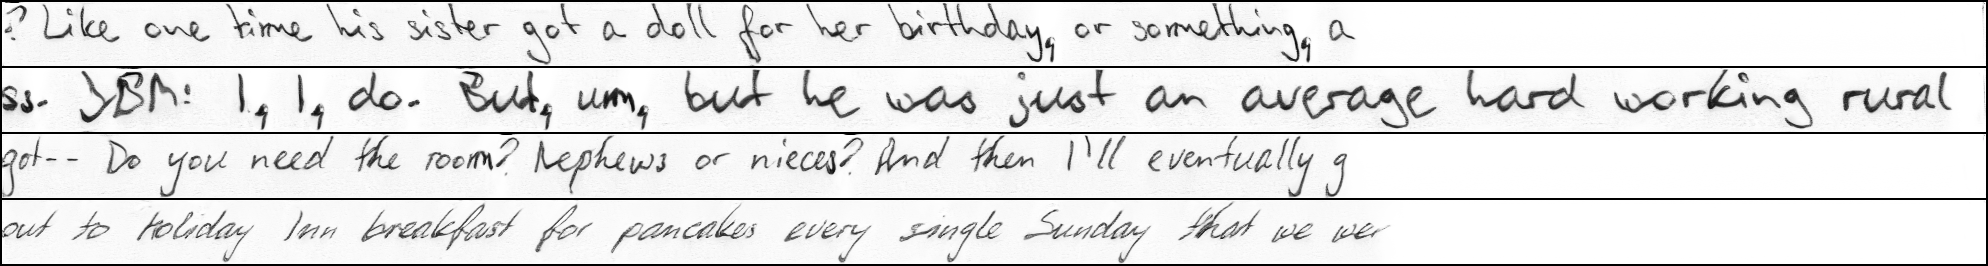 ? Like one time his sister got a doll for her birthday, or something, a
ss. JBM: I, I, do. But, umm, but he was just an average hard working rural
got-- Do you need the room? Nephews or nieces? And then I'll eventually g
out to Holiday Inn breakfast for pancakes every single Sunday that we wer